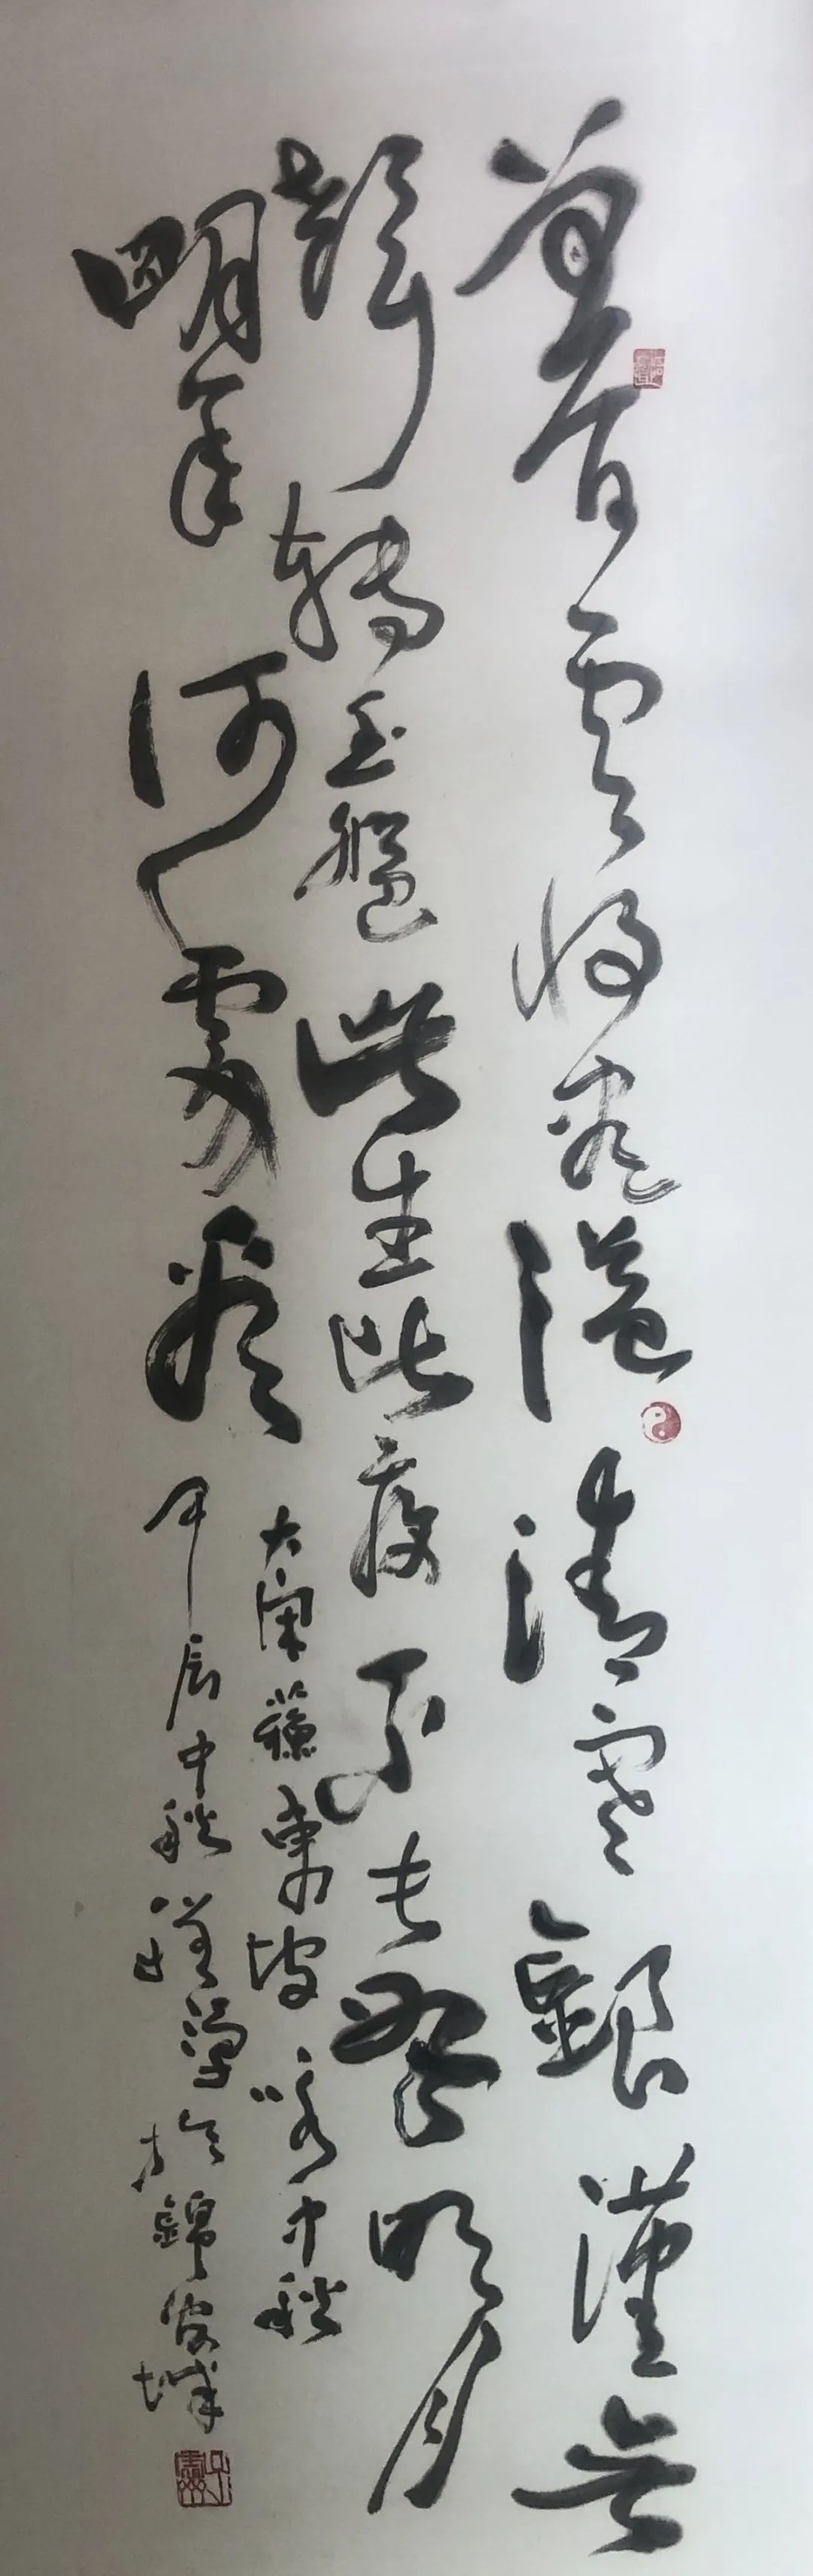 暮雲收盡溢清寒銀漢無
聲轉玉盤此生此夜不長好明月
明年何處看
大宋蘇東坡咏中秋
甲辰中秋於錦官城